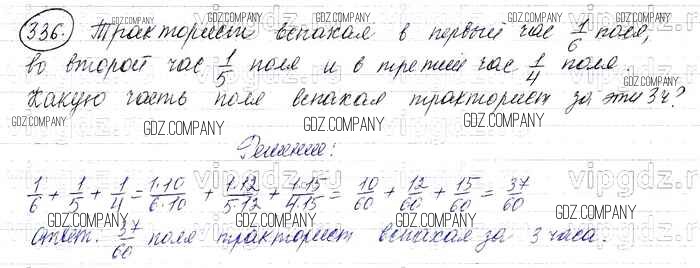 336. Тракторист вспахал в первый час 1/6 поля,
во второй час 1/5 поля и в третий час 1/4 поля.
Какую часть поля вспахал тракторист за эти 3ч?
Решение:
1/6 + 1/5 + 1/4 = 1·10/6·10 + 1·12/5·12 + 1·15/4·15 = 10/60 + 12/60 + 15/60 = 37/60
Ответ: 37/60 поля тракторист вспахал за 3 часа.
GDZ.COMPANY
vipgdz.ru